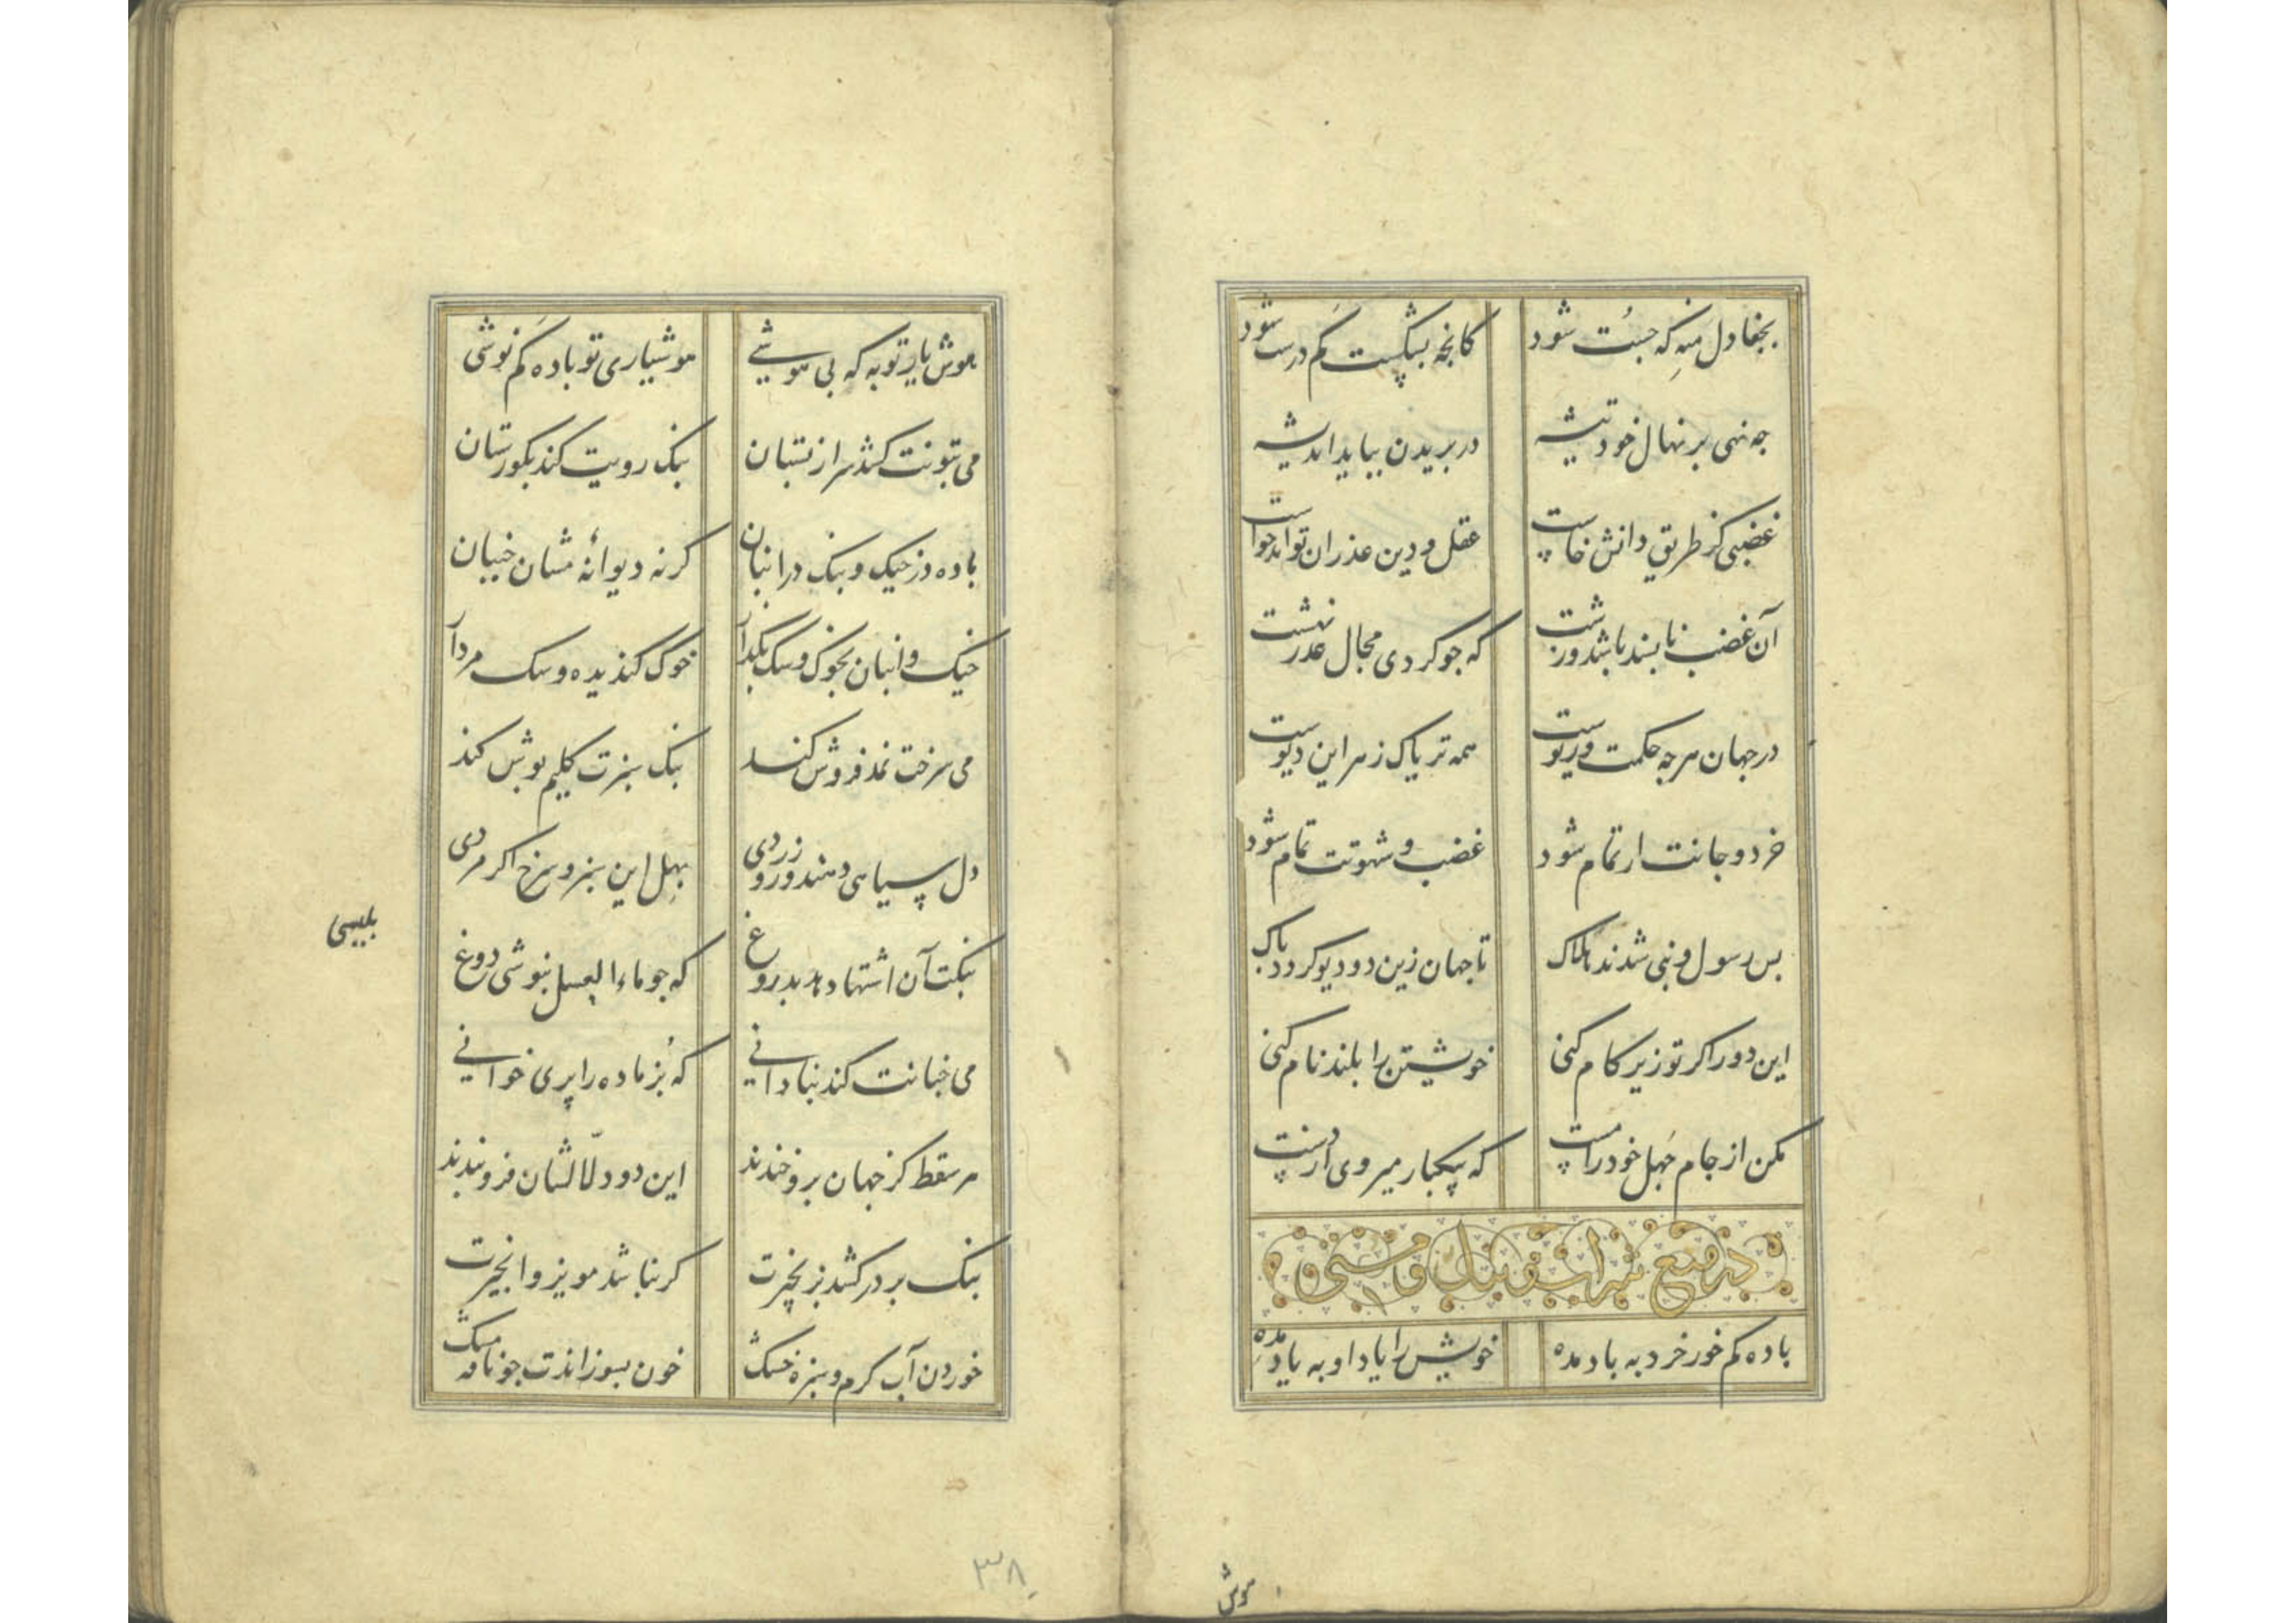 بجفا دل منه که جست شود کانچه بشکست کم درست شود
چه نهی بر نهال خود تیشه در بریدن بباید اندیشه
غضبی کز طریق دانش خاست عقل و دین عذر آن تواند خواست
آن غضب ناپسند باشد و زشت که چو کردی مجال عذر نهشت
در جهان هرچه حکمت و ریوست همه تریاک زهر این دیوست
خرد و جانت ار تمام شود غضب و شهوتت تمام شود
بس رسول و نبی شدند هلاک تا جهان زین دو دیو گردد پاک
این دو را گر تو زیر کام کنی خویشتن را بلند نام کنی
مکن از جام جهل خود را مست که بیکبار میروی از دست
در منع شراب و بنک و مستی
باده کم خور خرد به باد مده خویش را یاد او به یاد مده
هوش
هوش یار تو به که بی هوشی هوشیاری تو باده کم نوشی
می بتونت کشد سر از بستان بنک رویت کند بکورستان
باده در خیک و بنک در انبان کرنه دیوانهٔ مشان جنبان
خیک و انبان بخوک و سک بگذار خوک گندیده و سک مردار
می سرخت نمد فروش کند بنک سبزت کلیم پوش کند
دل سیاهی دهند و رو زردی بهل این سبز و سرخ اگر مردی
بنکت آن اشتها دهد بدروغ که چو ماء العسل بنوشی دوغ
می چنانت کند بنادانی که بز ماده را پری خوانی
هر سقط کز جهان بروخندند این دو دلالشان فروبندند
بنک بر درکشد بزنجیرت کر نباشد مویز و انجیرت
خوردن آب کرم و سبزه خشک خون بسوزاندت چو نافه مشک
۳۸